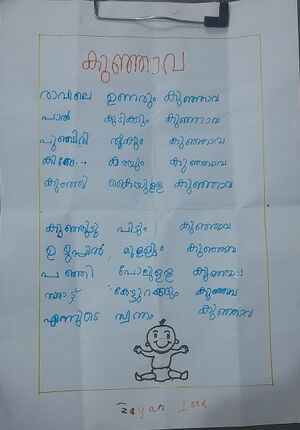 കുഞ്ഞാവ
രാവിലെ ഉണരും കുഞ്ഞാവ
പാൽ കുടിക്കും കുഞ്ഞാവ
പുഞ്ചിരി തൂകും കുഞ്ഞാവ
കരയും കുഞ്ഞാവ
കുഞ്ഞി കൈയുള്ള കുഞ്ഞാവ
പിടും കുഞ്ഞാവ
മുള്ളും കുഞ്ഞാവ
പഞ്ഞി പോലുള്ള കുഞ്ഞാവ
കേട്ടുറങ്ങും കുഞ്ഞാവ
എന്നുടെ സ്വന്തം കുഞ്ഞാവ
Zayan 1 std